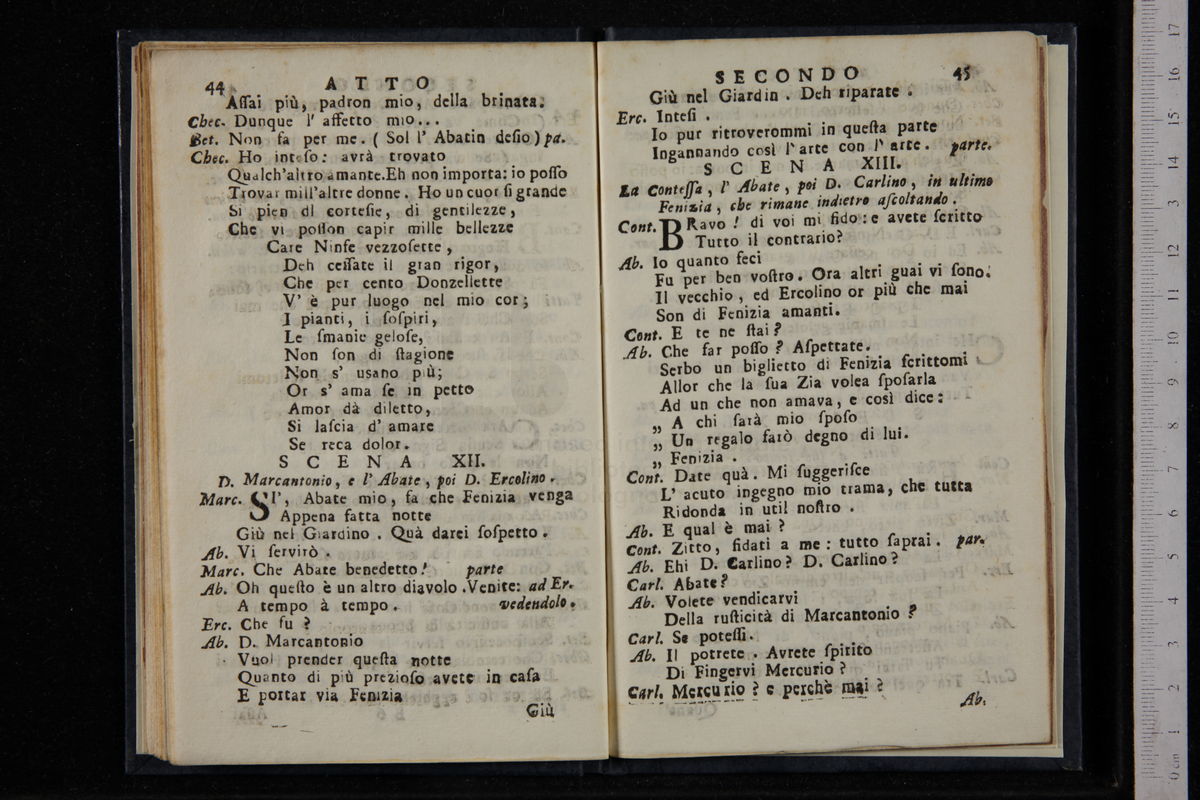 44 ATTO
Aſſai più, padron mio, della brinata.
Chec. Dunque l' affetto mio...
Bet. Non fa per me. ( Sol l' Abatin deſio ) pa.
Chec. Ho inteſo: avrà trovato
Qualch'altro amante. Eh non importa: io poſſo
Trovar mill'altre donne. Ho un cuor ſi grande
Sì pien di corteſie, di gentilezze,
Che vi poſſon capir mille bellezze
Care Ninfe vezzoſette,
Deh ceſſate il gran rigor,
Che per cento Donzellette
V' è pur luogo nel mio cor;
I pianti, i ſoſpiri,
Le ſmanie geloſe,
Non ſon di ſtagione
Non s' uſano più;
Or s' ama ſe in petto
Amor dà diletto,
Si laſcia d' amare
Se reca dolor.
SCENA XII.
D. Marcantonio, e l' Abate, poi D. Ercolino.
Marc. SI', Abate mio, fa che Fenizia venga
Appena fatta notte
Giù nel Giardino. Quà darei ſoſpetto.
Ab. Vi ſervirò.
Marc. Che Abate benedetto! parte
Ab. Oh queſto è un altro diavolo. Venite: ad Er.
A tempo à tempo. vedendolo.
Erc. Che fu?
Ab. D. Marcantonio
Vuol prender queſta notte
Quanto di più prezioſo avete in caſa
E portar via Fenizia
Giù
SECONDO 45
Giù nel Giardin. Deh riparate.
Erc. Inteſi.
Io pur ritroverommi in queſta parte
Ingannando così l' arte con l' arte. parte.
SCENA XIII.
La Conteſſa, l' Abate, poi D. Carlino, in ultimo
Fenizia, che rimane indietro aſcoltando.
Cont. BRavo! di voi mi fido: e avete ſcritto
Tutto il contrario?
Ab. Io quanto feci
Fu per ben voſtro. Ora altri guai vi ſono.
Il vecchio, ed Ercolino or più che mai
Son di Fenizia amanti.
Cont. E te ne ſtai?
Ab. Che far poſſo? Aſpettate.
Serbo un biglietto di Fenizia ſcrittomi
Allor che la ſua Zia volea ſpoſarla
Ad un che non amava, e così dice:
„ A chi ſarà mio ſpoſo
„ Un regalo farò degno di lui.
„ Fenizia.
Cont. Date quà. Mi ſuggeriſce
L' acuto ingegno mio trama, che tutta
Ridonda in util noſtro.
Ab. E qual è mai?
Cont. Zitto, fidati a me: tutto ſaprai. par.
Ab. Ehi D. Carlino? D. Carlino?
Carl. Abate?
Ab. Volete vendicarvi
Della ruſticità di Marcantonio?
Carl. Se poteſſi.
Ab. Il potrete. Avrete ſpirito
Di Fingervi Mercurio?
Carl. Mercurio? e perchè mai?
Ab.